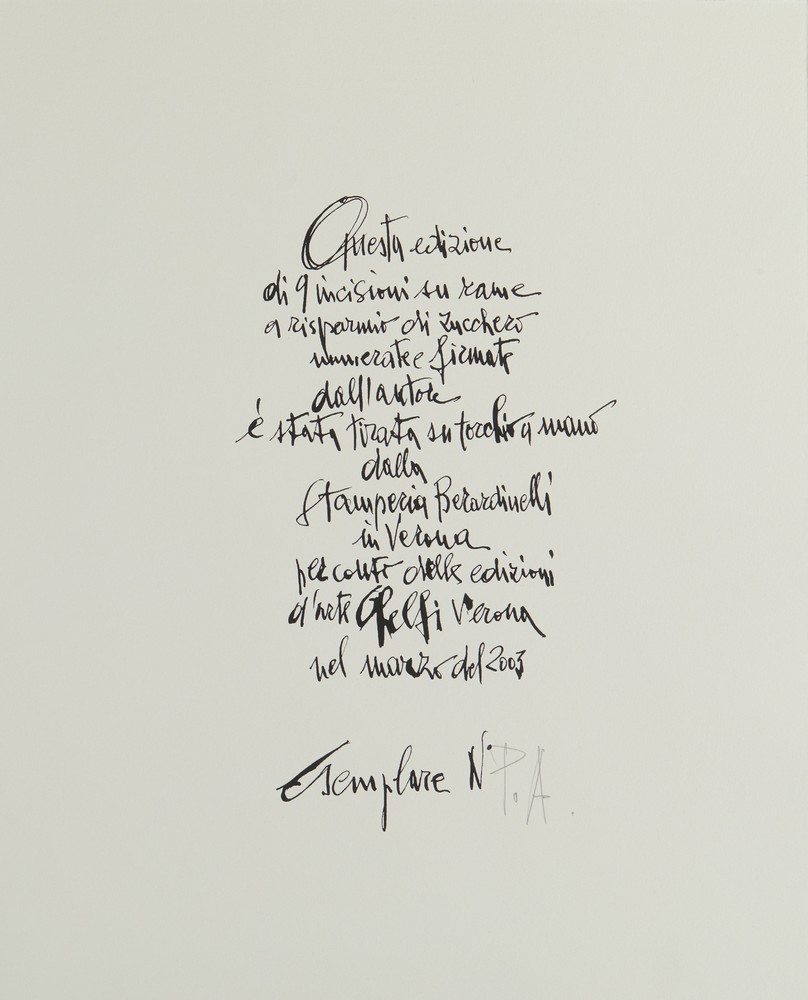 Questa edizione
di 9 incisioni su rame
a risparmio di zucchero
numerate e firmate
dall'autore
è stata tirata su torchio a mano
dalla
Stamperia Berardinelli
in Verona
per conto delle edizioni
d'arte Ghelfi Verona
nel marzo del 2003
Esemplare N° P.A.